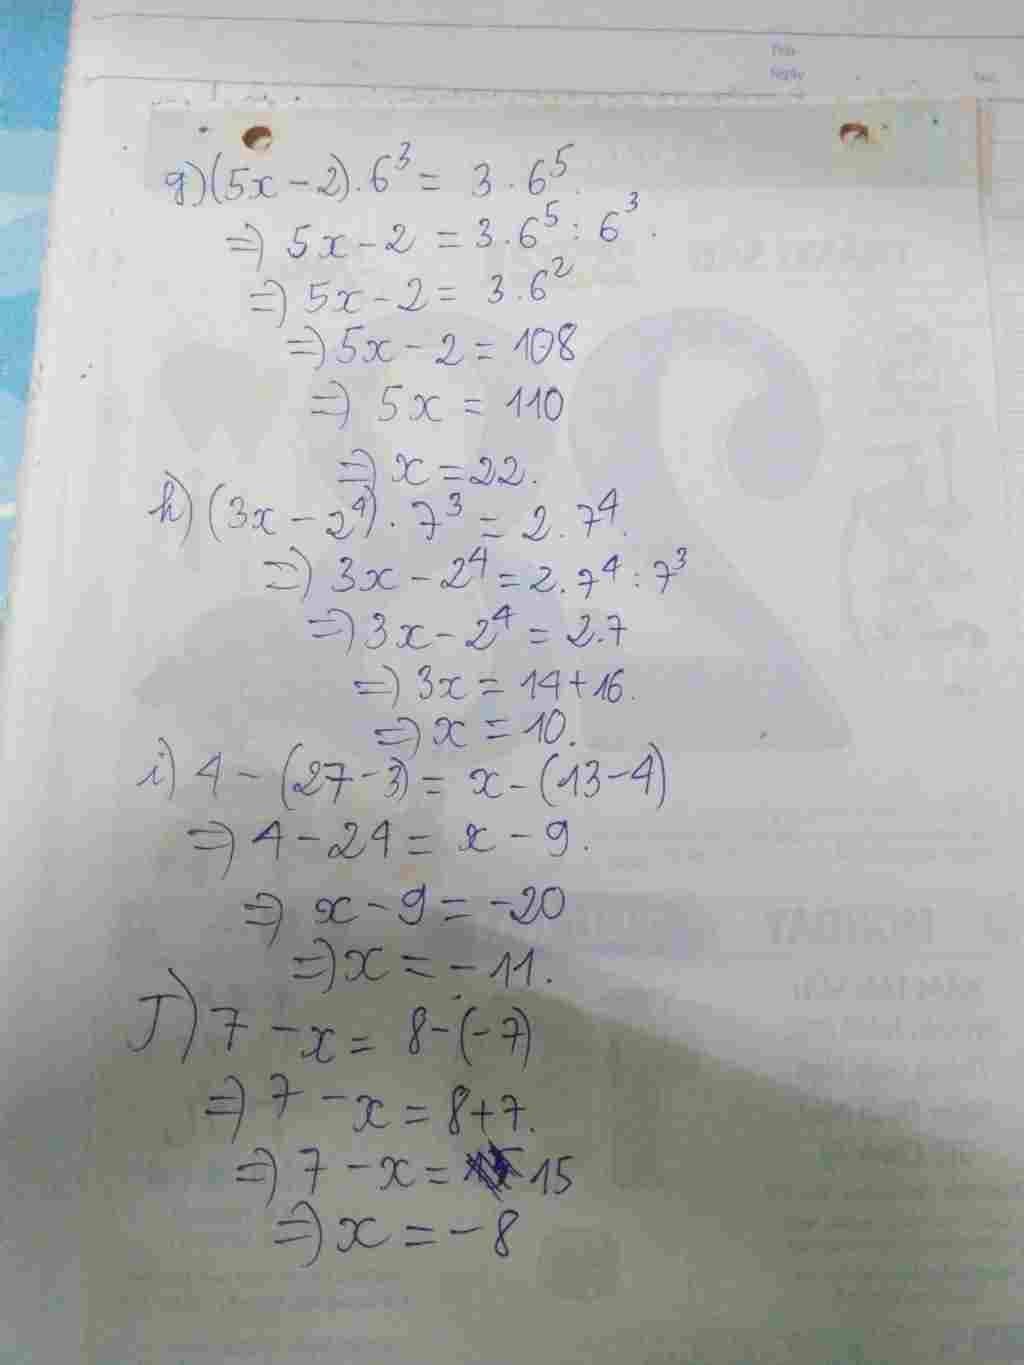 Ngày
g) (5x - 2) . 6³ = 3 . 6⁵.
=> 5x - 2 = 3 . 6⁵ : 6³.
=> 5x - 2 = 3 . 6²
=> 5x - 2 = 108
=> 5x = 110
=> x = 22.
h) (3x - 2⁴) . 7³ = 2 . 7⁴.
=> 3x - 2⁴ = 2 . 7⁴ : 7³
=> 3x - 2⁴ = 2.7
=> 3x = 14 + 16.
=> x = 10.
i) 4 - (27 - 3) = x - (13 - 4)
=> 4 - 24 = x - 9.
=> x - 9 = -20
=> x = -11.
J) 7 - x = 8 - (-7)
=> 7 - x = 8 + 7.
=> 7 - x = 15
=> x = -8